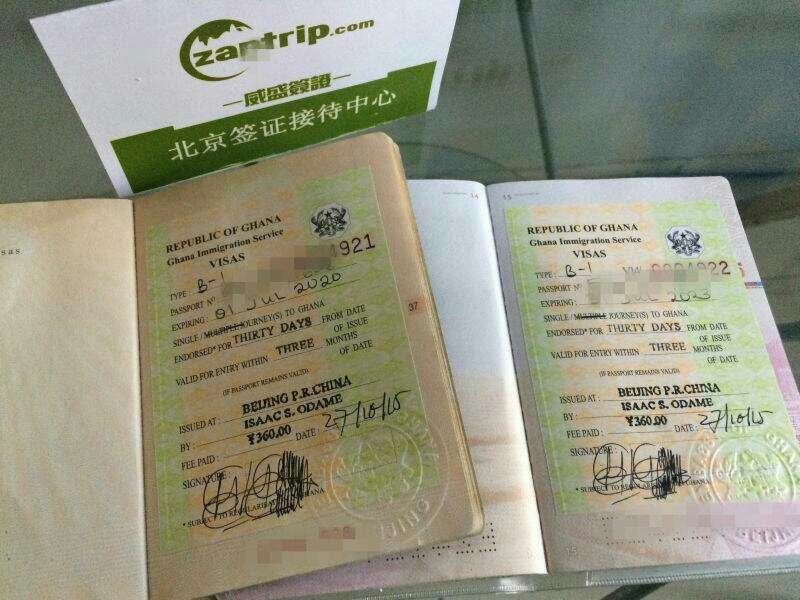 trip.com
威盛簽證
北京签证接待中心
sas
REPUBLIC OF GHANA
Ghana Immigration Service
VISAS
TYPE: B-1 4921
PASSPORT Nº
EXPIRING: 01 JUL 2020
SINGLE / MULTIPLE JOURNEY(S) TO GHANA
ENDORSED* FOR THIRTY DAYS FROM DATE
OF ISSUE
VALID FOR ENTRY WITHIN THREE MONTHS
OF DATE
(IF PASSPORT REMAINS VALID)
ISSUED AT: BEIJING P.R.CHINA
BY: ISAAC S. ODAME
FEE PAID: ¥360.00 DATE: 27/10/15
SIGNATURE:
37
14
15
REPUBLIC OF GHANA
Ghana Immigration Service
VISAS
TYPE: B-1 4922
PASSPORT Nº
EXPIRING: JUL
SINGLE / MULTIPLE JOURNEY(S) TO GHANA
ENDORSED* FOR THIRTY DAYS FROM DATE
OF ISSUE
VALID FOR ENTRY WITHIN THREE MONTHS
OF DATE
(IF PASSPORT REMAINS VALID)
ISSUED AT: BEIJING P.R.CHINA
BY: ISAAC S. ODAME
FEE PAID: ¥360.00 DATE: 27/10/15
SIGNATURE:
15